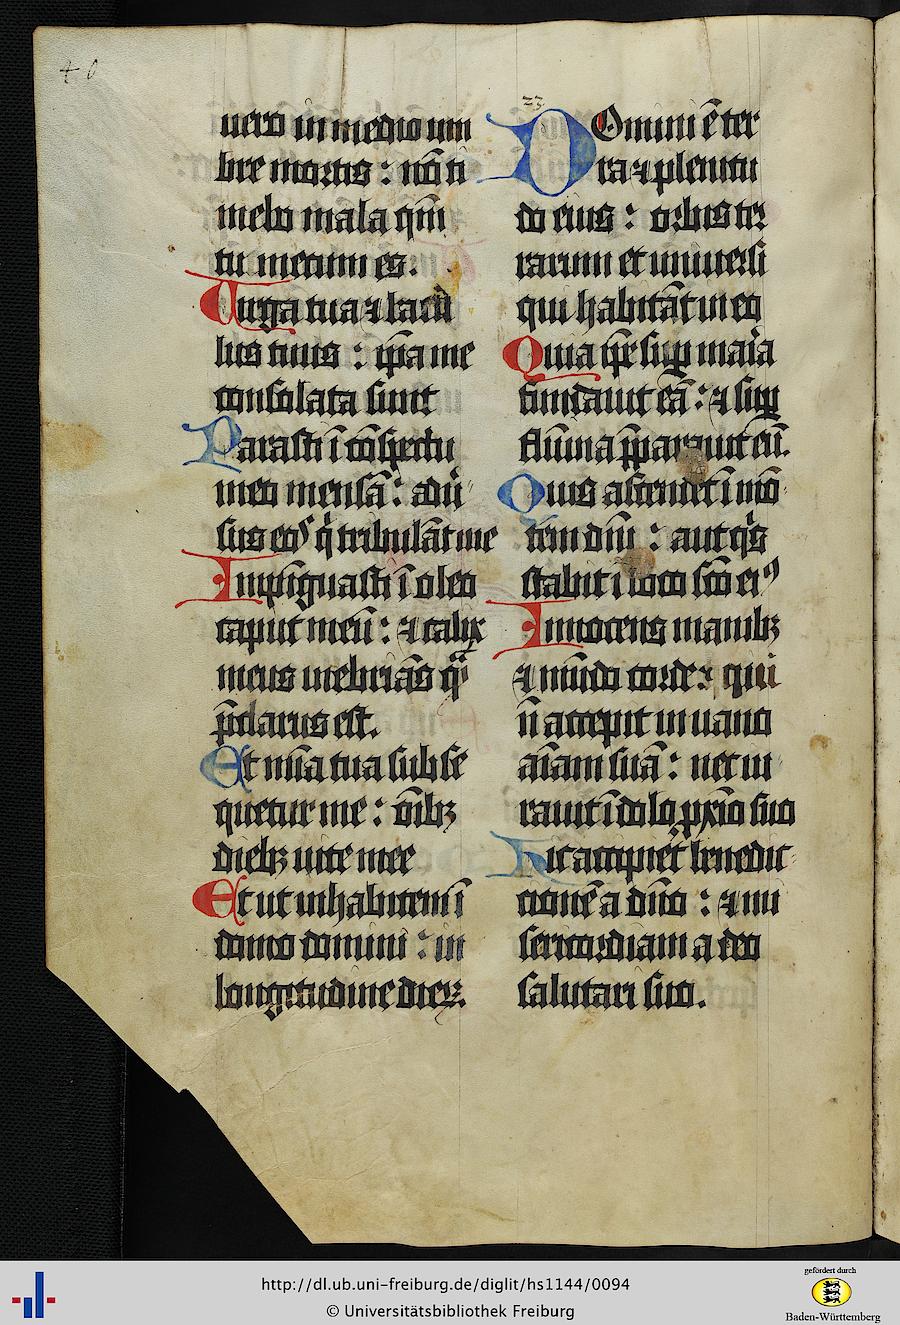 46
uero in medio um
bre mortis : nō ti
mebo mala qm̄
tu mecum es.
Uirga tua ⁊ bacu
lus tuus : ip̄a me
consolata sunt
Parasti ī cōspectu
meo mensā : adū
sus eos q̇ tribulāt me
Impiguasti ī oleo
caput meū : ⁊ calix
meus inebriās q̄
p̄clarus est.
Et mīa tua subse
quetur me : ōibꝫ
diebꝫ uite mee
Et ut inhabitem ī
domo domini : in
longitudine dieꝝ.
23.
DOmini ē ter
ra ⁊ plenitu
do eius : orbis ter
rarum et uniuersi
qui habitāt in eo
Quia ip̄e sup̄ maria
fundauit eā : ⁊ sup̄
flumina p̄parauit eū.
Quis ascendet ī mō
tem dn̄i : aut q̇s
stabit ī loco sco eiꝰ
Innocens manibꝫ
⁊ mūdo corde : qui
n̄ accepit in uano
aīam suā : nec iu
rauit ī dolo ꝓxīo suo
Hic accipiet benedic
tionē a dn̄o : ⁊ mi
sericordiam a deo
salutari suo.
http://dl.ub.uni-freiburg.de/diglit/hs1144/0094
© Universitätsbibliothek Freiburg
gefördert durch
Baden-Württemberg